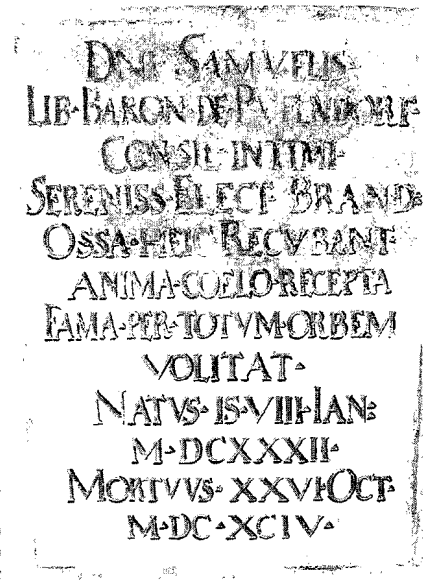 DNI· SAMVELIS·
LIB·BARON·DE·PVFENDORF·
CONSIL·INTIMI·
SERENISS·ELECT·BRAND:
OSSA·HEIC·RECVBANT·
ANIMA·COELO·RECEPTA
FAMA·PER·TOTVM·ORBEM
VOLITAT·
NATVS·IS·VIII·IAN:
M·DCXXXII·
MORTVVS·XXVI·OCT·
M·DC·XCIV·